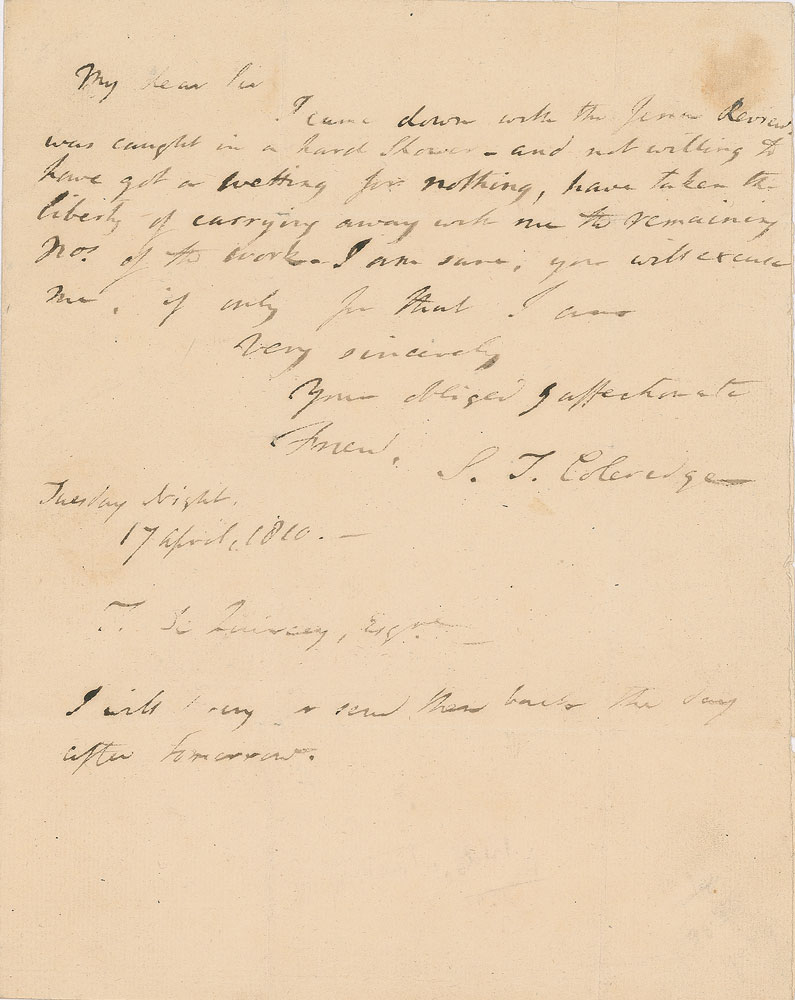 My dear Sir
I came down with the Jena Review,
was caught in a hard Shower – and not willing to
have got a wetting for nothing, have taken the
liberty of carrying away with me the remaining
Nos. of the work – I am sure, you will excuse
me, if only for that I am
Very sincerely
Your obliged & affectionate
Friend,
S. T. Coleridge
Tuesday Night.
17 April, 1810. –
T. De Quincey, Esqre
I will bring or send them back the day
after tomorrow.